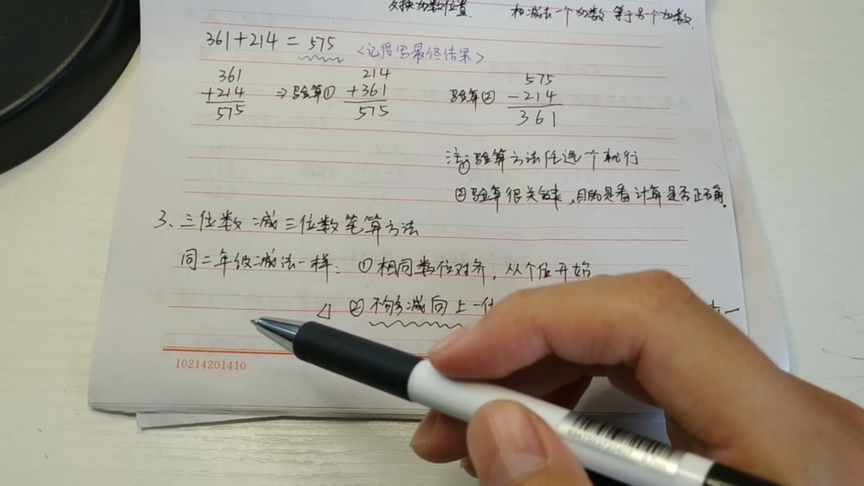 交换加数位置. 和减去一个加数等于另一个加数.
361+214 = 575 <记得写最终结果>
361
+214
575
⇒验算① 214
+361
575
验算② 575
-214
361
注:①验算方法任选一个就行.
②验算很关键,目的是看计算是否正确.
3、三位数减三位数笔算方法
同二年级减法一样: ①相同数位对齐,从个位开始
△ ②不够减向上一位
10214201410